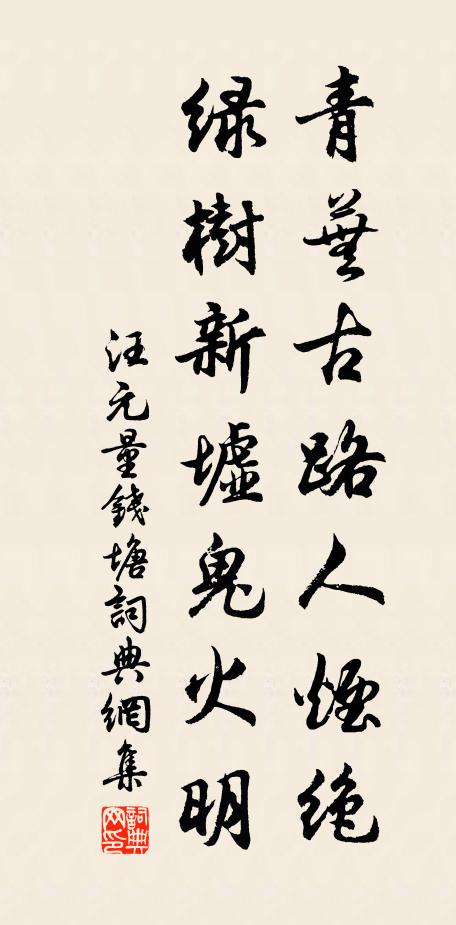 青蕪古路人煙絶
綠樹新墟鬼火明
汪元量錢塘詞典網集
詞典網印